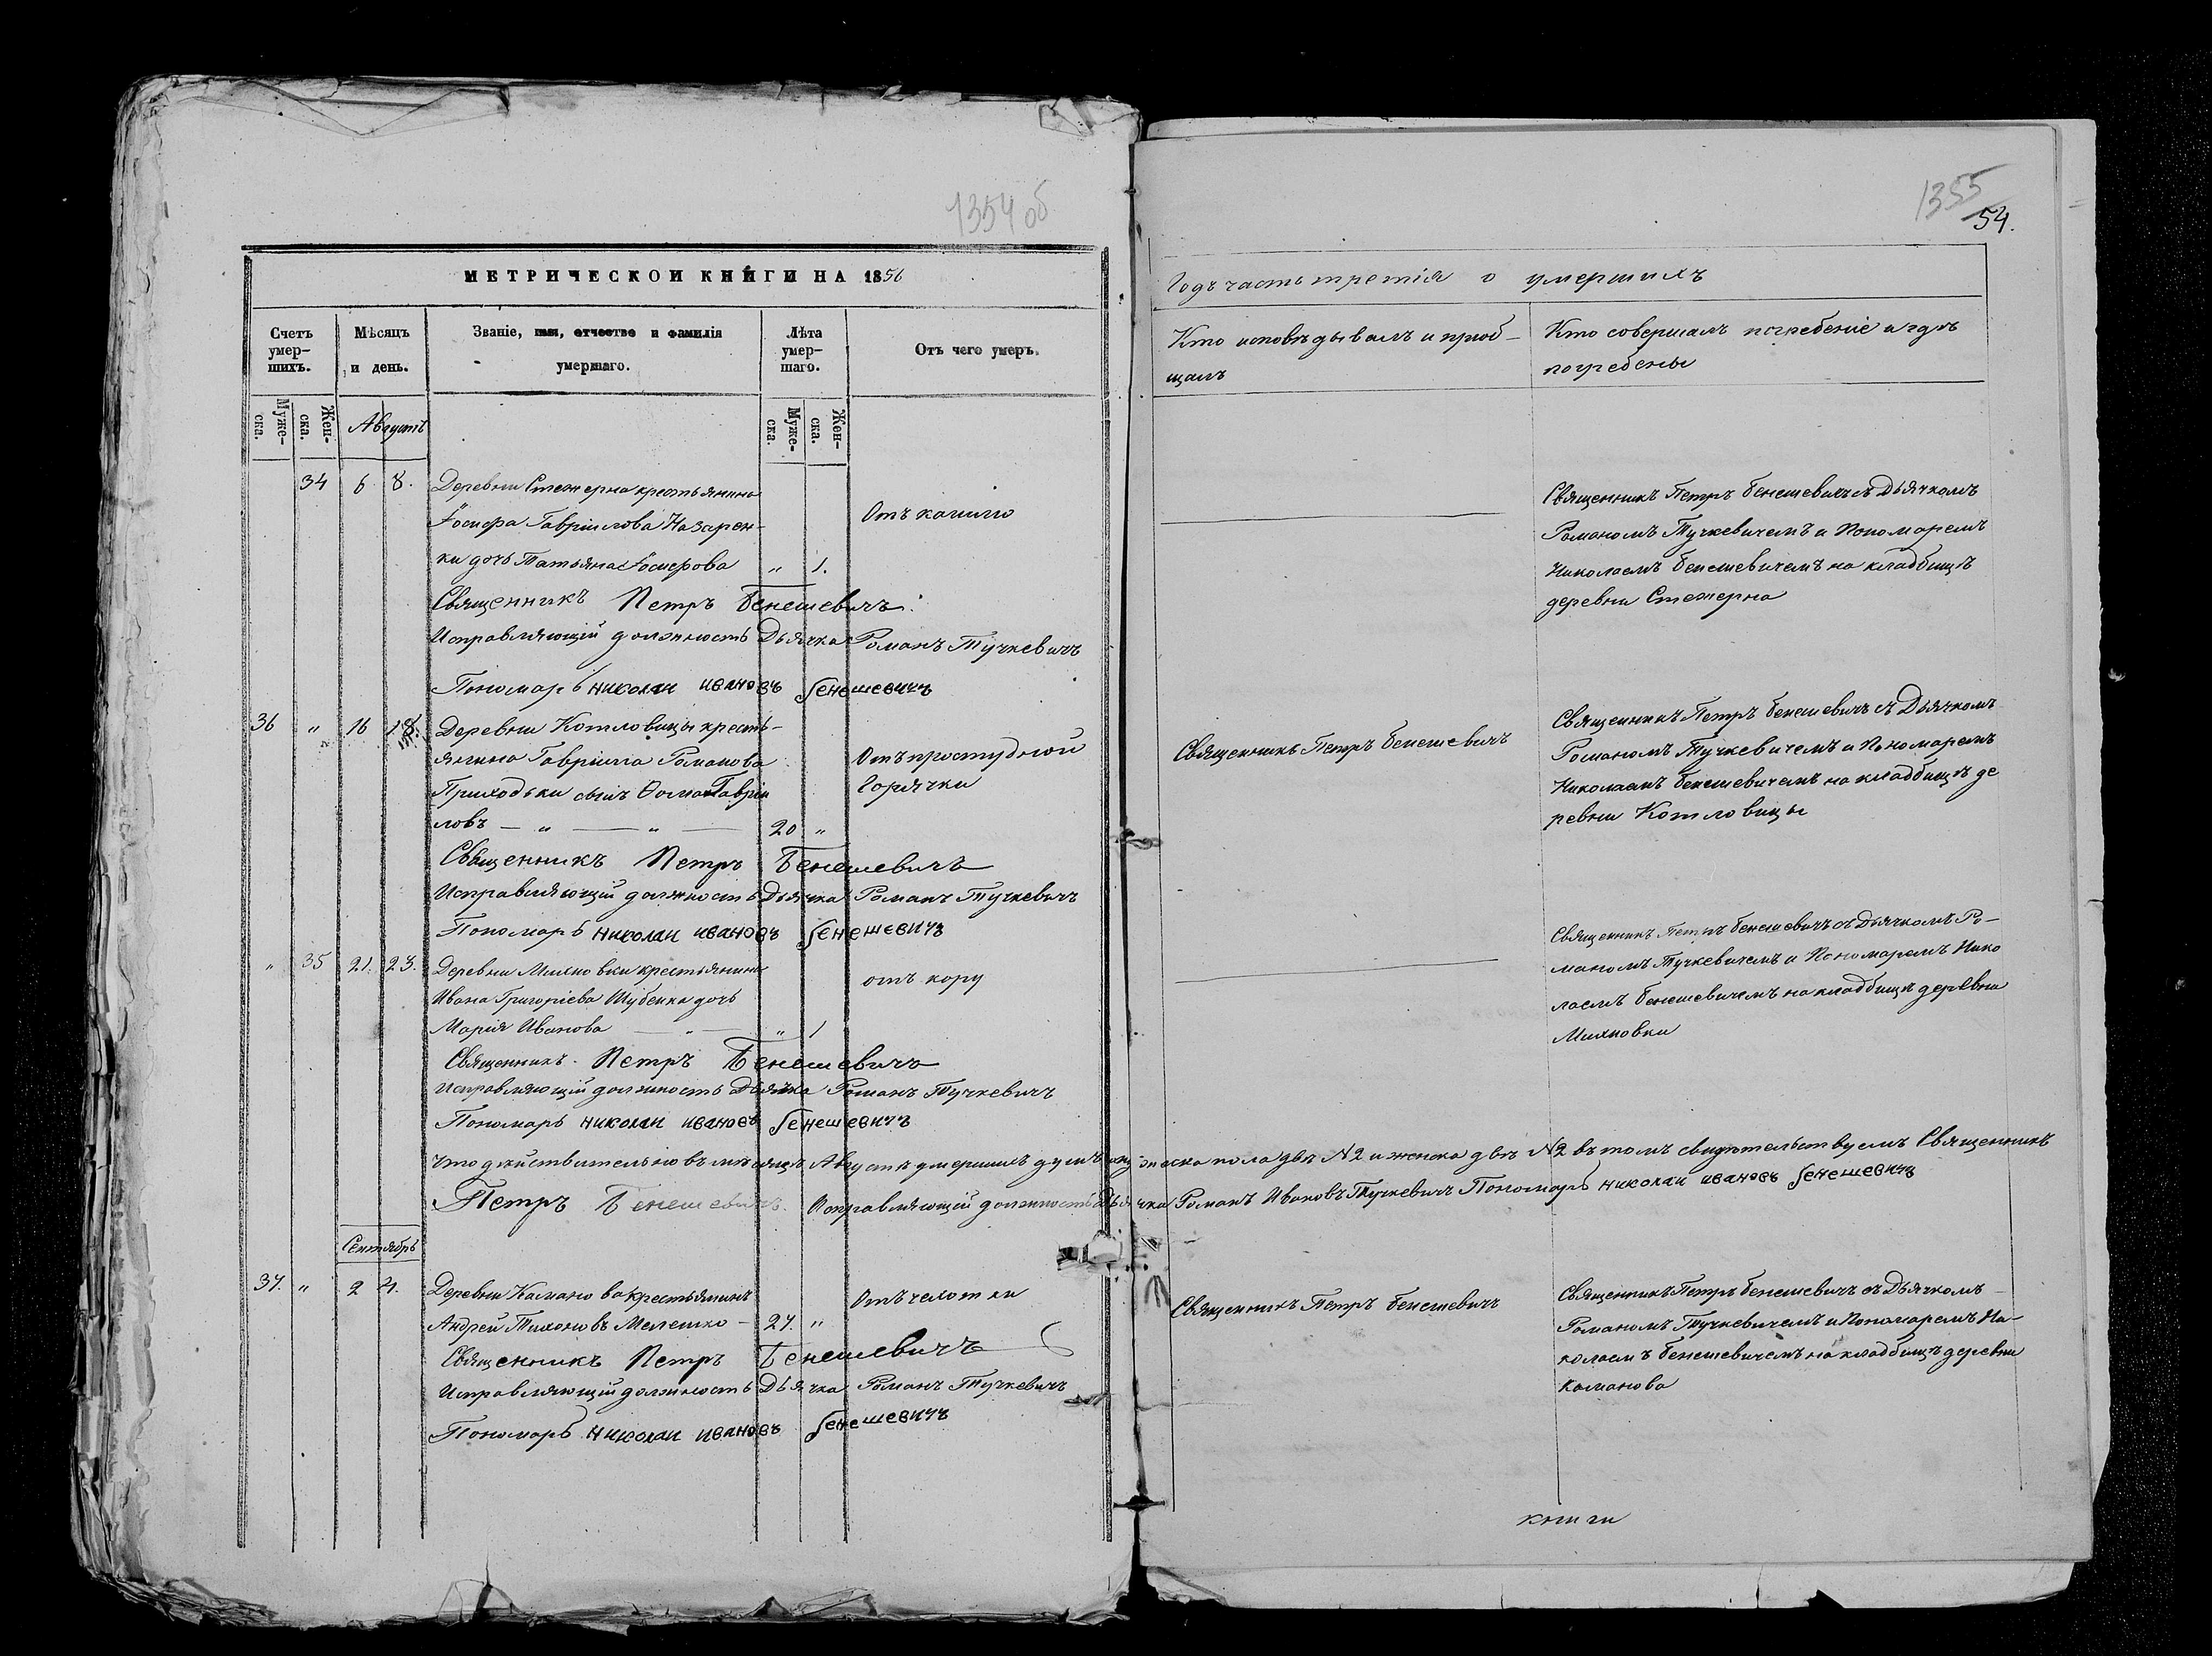 1354 об
МЕТРИЧЕСКОЙ КНИГИ НА 1856
Счетъ умер-шихъ.
Мѣсяцъ и день.
Званіе, имя, отчество и фамилія умершаго.
Лѣта умер-шаго.
Отъ чего умеръ.
Муже-ска.
Жен-ска.
Августъ
Муже-ска.
Жен-ска.
34 6 8. Деревни Стежерна крестьянина
Іосифа Гавріилова Назарен-
ки дочь Татьяна Іосифова „ 1.
Отъ кашлю
Священникъ Петръ Бенешевичъ.
Исправляющій должность Дьячка Романъ Тучкевичъ
Пономарь николаи ивановъ бенешевичъ
36 „ 16 18. Деревни Котловицы кресть-
янина Гавріила Романова
Приходьки сынъ Ѳома Гавріи
ловъ — „ — „ — 20 „
Отъ простудной
горячки
Священникъ Петръ Бенешевичъ
Исправляющій должность Дьячка Романъ Тучкевичъ
Пономарь николаи ивановъ бенешевичъ
„ 35 21. 23. Деревни Михновки крестьянина
Ивана Григоріева Шубенка дочь
Марія Иванова — „ — „ 1
отъ кору
Священникъ Петръ Бенешевичъ
Исправляющій должность Дьячка Романъ Тучкевичъ
Пономарь николаи ивановъ бенешевичъ
Что дѣйствительно въ мѣсяцѣ Августѣ умершихъ душъ мужеска пола двѣ N2 и женска двѣ N2 въ томъ свидѣтельствуемъ Священникъ
Петръ Бенешевичъ. Исправляющій должность Дьячка Романъ Ивановъ Тучкевичъ Пономарь николаи ивановъ бенешевичъ
Сентябрь
37. „ 2 4. Деревни Каманова крестьянинъ
Андрей Тихоновъ Мелешко — 27. „
Отъ чехотки
Священникъ Петръ Бенешевичъ
Исправляющій должность Дьячка Романъ Тучкевичъ
Пономарь николаи ивановъ бенешевичъ
1355
54.
Годъ часть третія о умершихъ
Кто исповѣдывалъ и пріоб-
щалъ
Кто совершалъ погребеніе и гдѣ
погребены
Священникъ Петръ Бенешевичъ съ Дьячкомъ
Романомъ Тучкевичемъ и Пономаремъ
Николаемъ Бенешевичемъ на кладбищѣ
деревни Стежерна
Священникъ Петръ Бенешевичъ
Священникъ Петръ Бенешевичъ съ Дьячкомъ
Романомъ Тучкевичемъ и Пономаремъ
Николаемъ Бенешевичемъ на кладбищѣ де
ревни Котловицы
Священникъ Петръ Бенешевичъ съ Дьячкомъ Ро-
маномъ Тучкевичемъ и Пономаремъ Нико
лаемъ Бенешевичемъ на кладбищѣ деревни
Михновки
Священникъ Петръ Бенешевичъ
Священникъ Петръ Бенешевичъ съ Дьячкомъ
Романомъ Тучкевичемъ и Пономаремъ Ни-
колаемъ Бенешевичемъ на кладбищѣ деревни
Каманова
книги